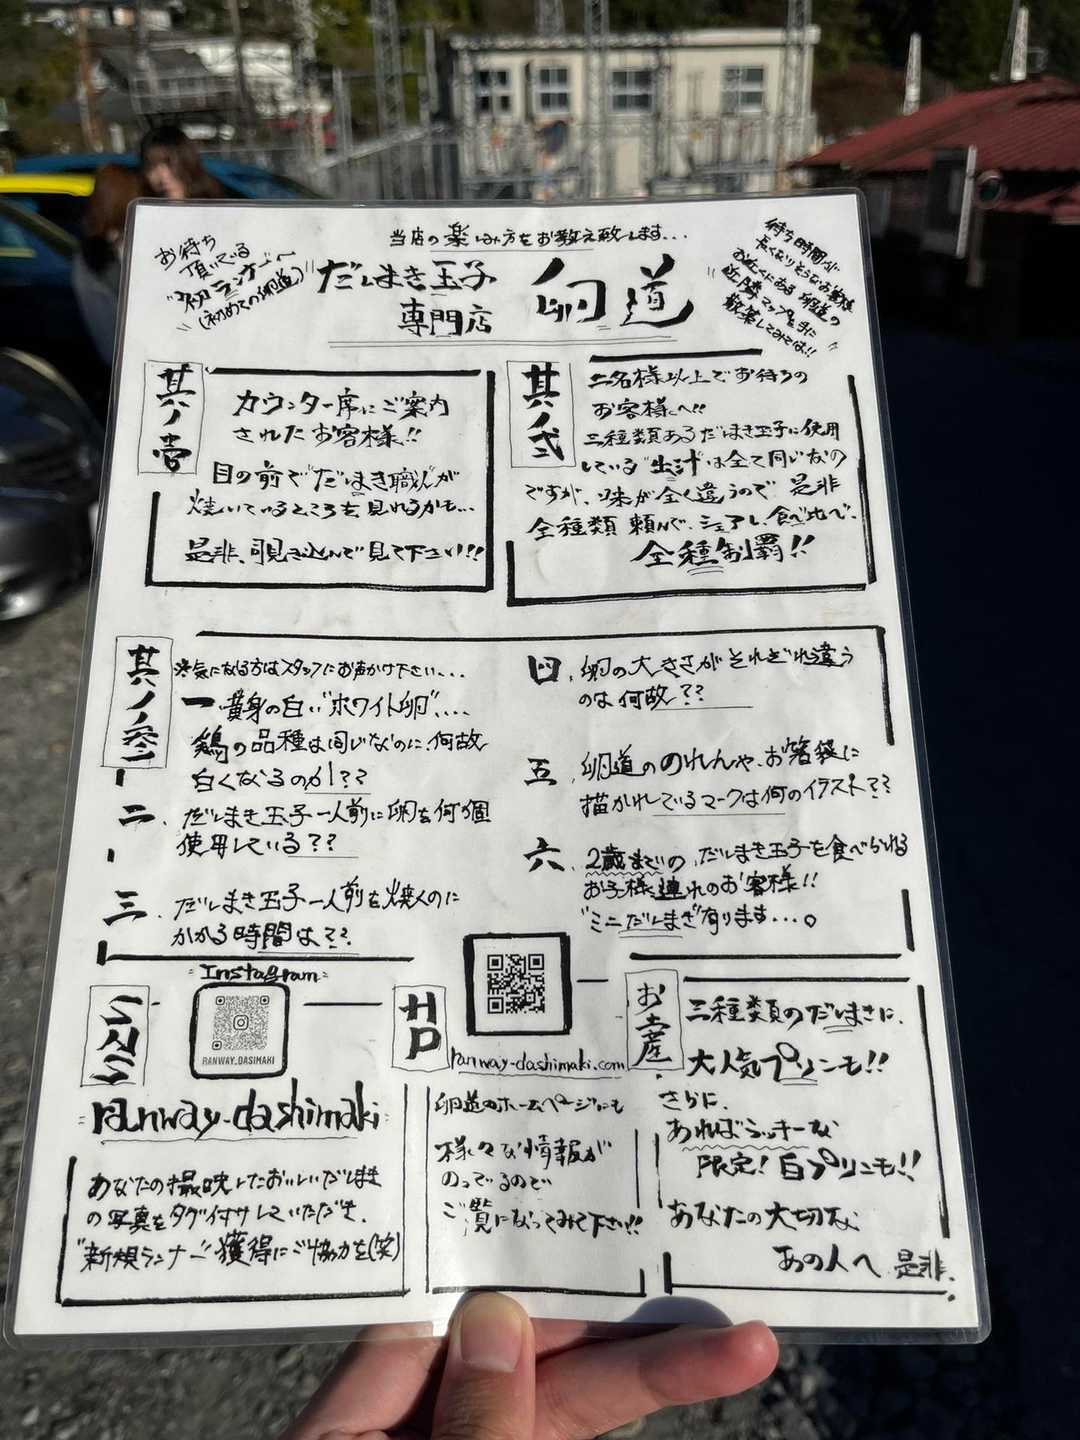 当店の楽しみ方をお教え致します...
お待ち
頂いている
"初ランナー"へ
(初めての卵道)
"だしまき玉子
専門店
卵道
待ち時間が
長くなりそうなお客様
お近くにある卵道の
近隣マップを手に
散策してみては!!
其ノ壱
カウンター席にご案内
されたお客様!!
目の前で"だしまき職人"が
焼いているところを見れるかも...
是非、覗き込んで見て下さい!!!
其ノ弐
二名様以上でお待ちの
お客様へ!!
三種類あるだしまき玉子に使用
している"出汁"は全て同じなの
ですが、味が全く違うので是非
全種類頼んで、シェアし、食べ比べ、
全種制覇!!
其ノ参
※気になる方はスタッフにお声かけ下さい...
一、黄身の白い"ホワイト卵"....
鶏の品種は同じなのに、何故
白くなるのか!??
二、だしまき玉子一人前に卵を何個
使用している??
三、だしまき玉子一人前を焼くのに
かかる時間は??
四、卵の大きさがそれぞれ違う
のは何故!??
五、卵道ののれんや、お箸袋に
描かれているマークは何のイラスト??
六、2歳までの、だしまき玉子を食べられる
お子様連れのお客様!!
"ミニだしまき"有ります...。
SNS
Instagram
RANWAY_DASIMAKI
ranway-dashimaki
あなたの撮影したおいしいだしまき
の写真をタグ付けしていただき、
"新規ランナー"獲得にご協力を(笑)
HP
ranway-dashimaki.com
卵道のホームページにも
様々な情報が
のってるので
ご覧になってみて下さい!!
お土産
三種類のだしまきに、
大人気プリンも!!
さらに、
あればラッキーな
限定!白プリンも!!
あなたの大切な
あの人へ是非、